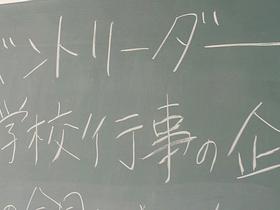 ベントリーダー
学校行事の企